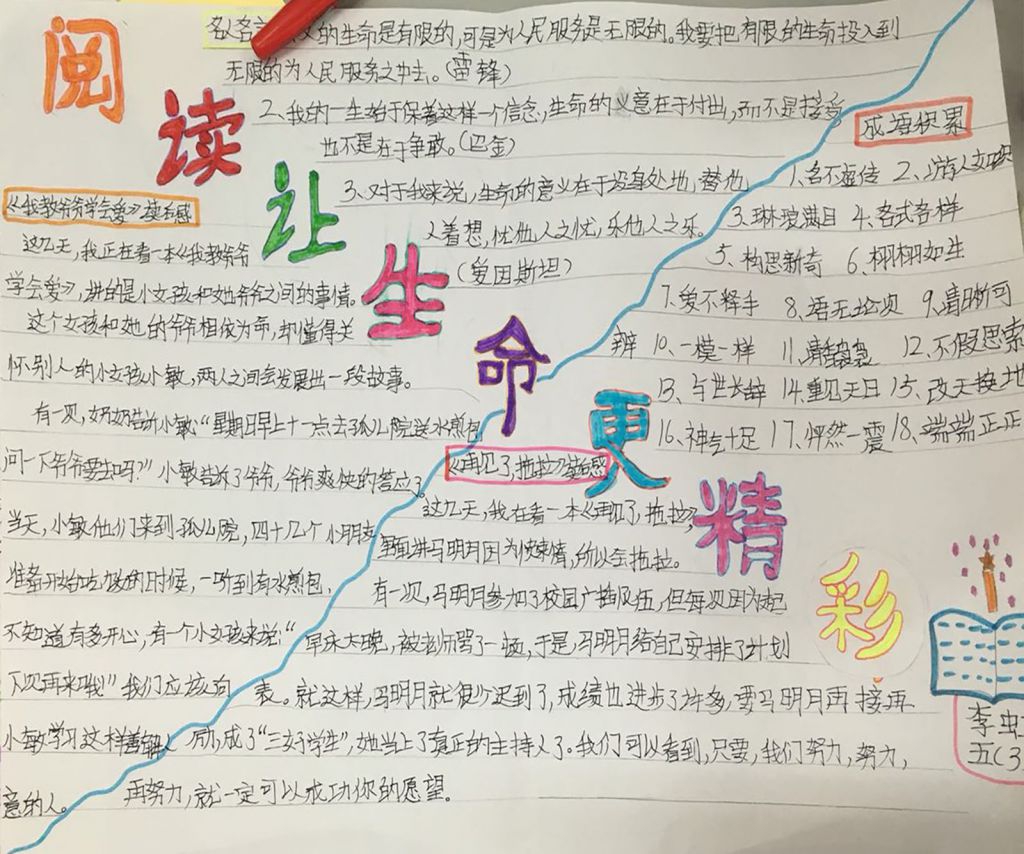 阅读让生命更精彩
名人名言 的生命是有限的,可是为人民服务是无限的。我要把有限的生命投入到
无限的为人民服务之中去。(雷锋)
2、我的一生始于保着这样一个信念,生命的义意在于付出,而不是接受
也不是在于争取。(巴金)
3、对于我来说,生命的意义在于设身处地,替他
人着想,忧他人之忧,乐他人之乐。
(爱因斯坦)
成语积累
1、名不虚传 2、
3、琳琅满目 4、各式各样
5、构思新奇 6、栩栩如生
7、爱不释手 8、语无论次 9、清晰可
辨 10、一模一样 11、 12、不假思索
13、与世长辞 14、重见天日 15、改天换地
16、神气十足 17、怦然一震 18、端端正正
《我教爷爷学会爱》读后感
这几天,我正在看一本《我教爷爷
学会爱》,讲的是小女孩和她爷爷之间的事情。
这个女孩和她的爷爷相依为命,却懂得关
怀别人的小女孩小敏,两人之间会发展出一段故事。
有一次,奶奶告诉小敏:“星期日早上十一点去孤儿院送水煎包
问一下爷爷要去吗?”小敏告诉了爷爷,爷爷爽快的答应了。
当天,小敏他们来到孤儿院,四十几个小朋友
准备开始吃饭的时候,一听到有水煎包,
不知道有多开心,有一个小女孩来说:“
下次再来哦!”我们应该向
小敏学习这样善解人
意的人。
《再见了,拖拉》读后感
这几天,我在看一本《再见了,拖拉》
里面讲马明月因为快建情,所以会拖拉。
有一次,马明月参加了校园广播队伍,但每次因为起
早床太晚,被老师骂了一顿,于是,马明月给自己安排了计划
表。就这样,马明月就很少迟到了,成绩也进步了许多,要马明月再接再
励,成了“三好学生”,她当上了真正的主持人了。我们可以看到,只要,我们努力,努力,
再努力,就一定可以成功你的愿望。
李
五(3